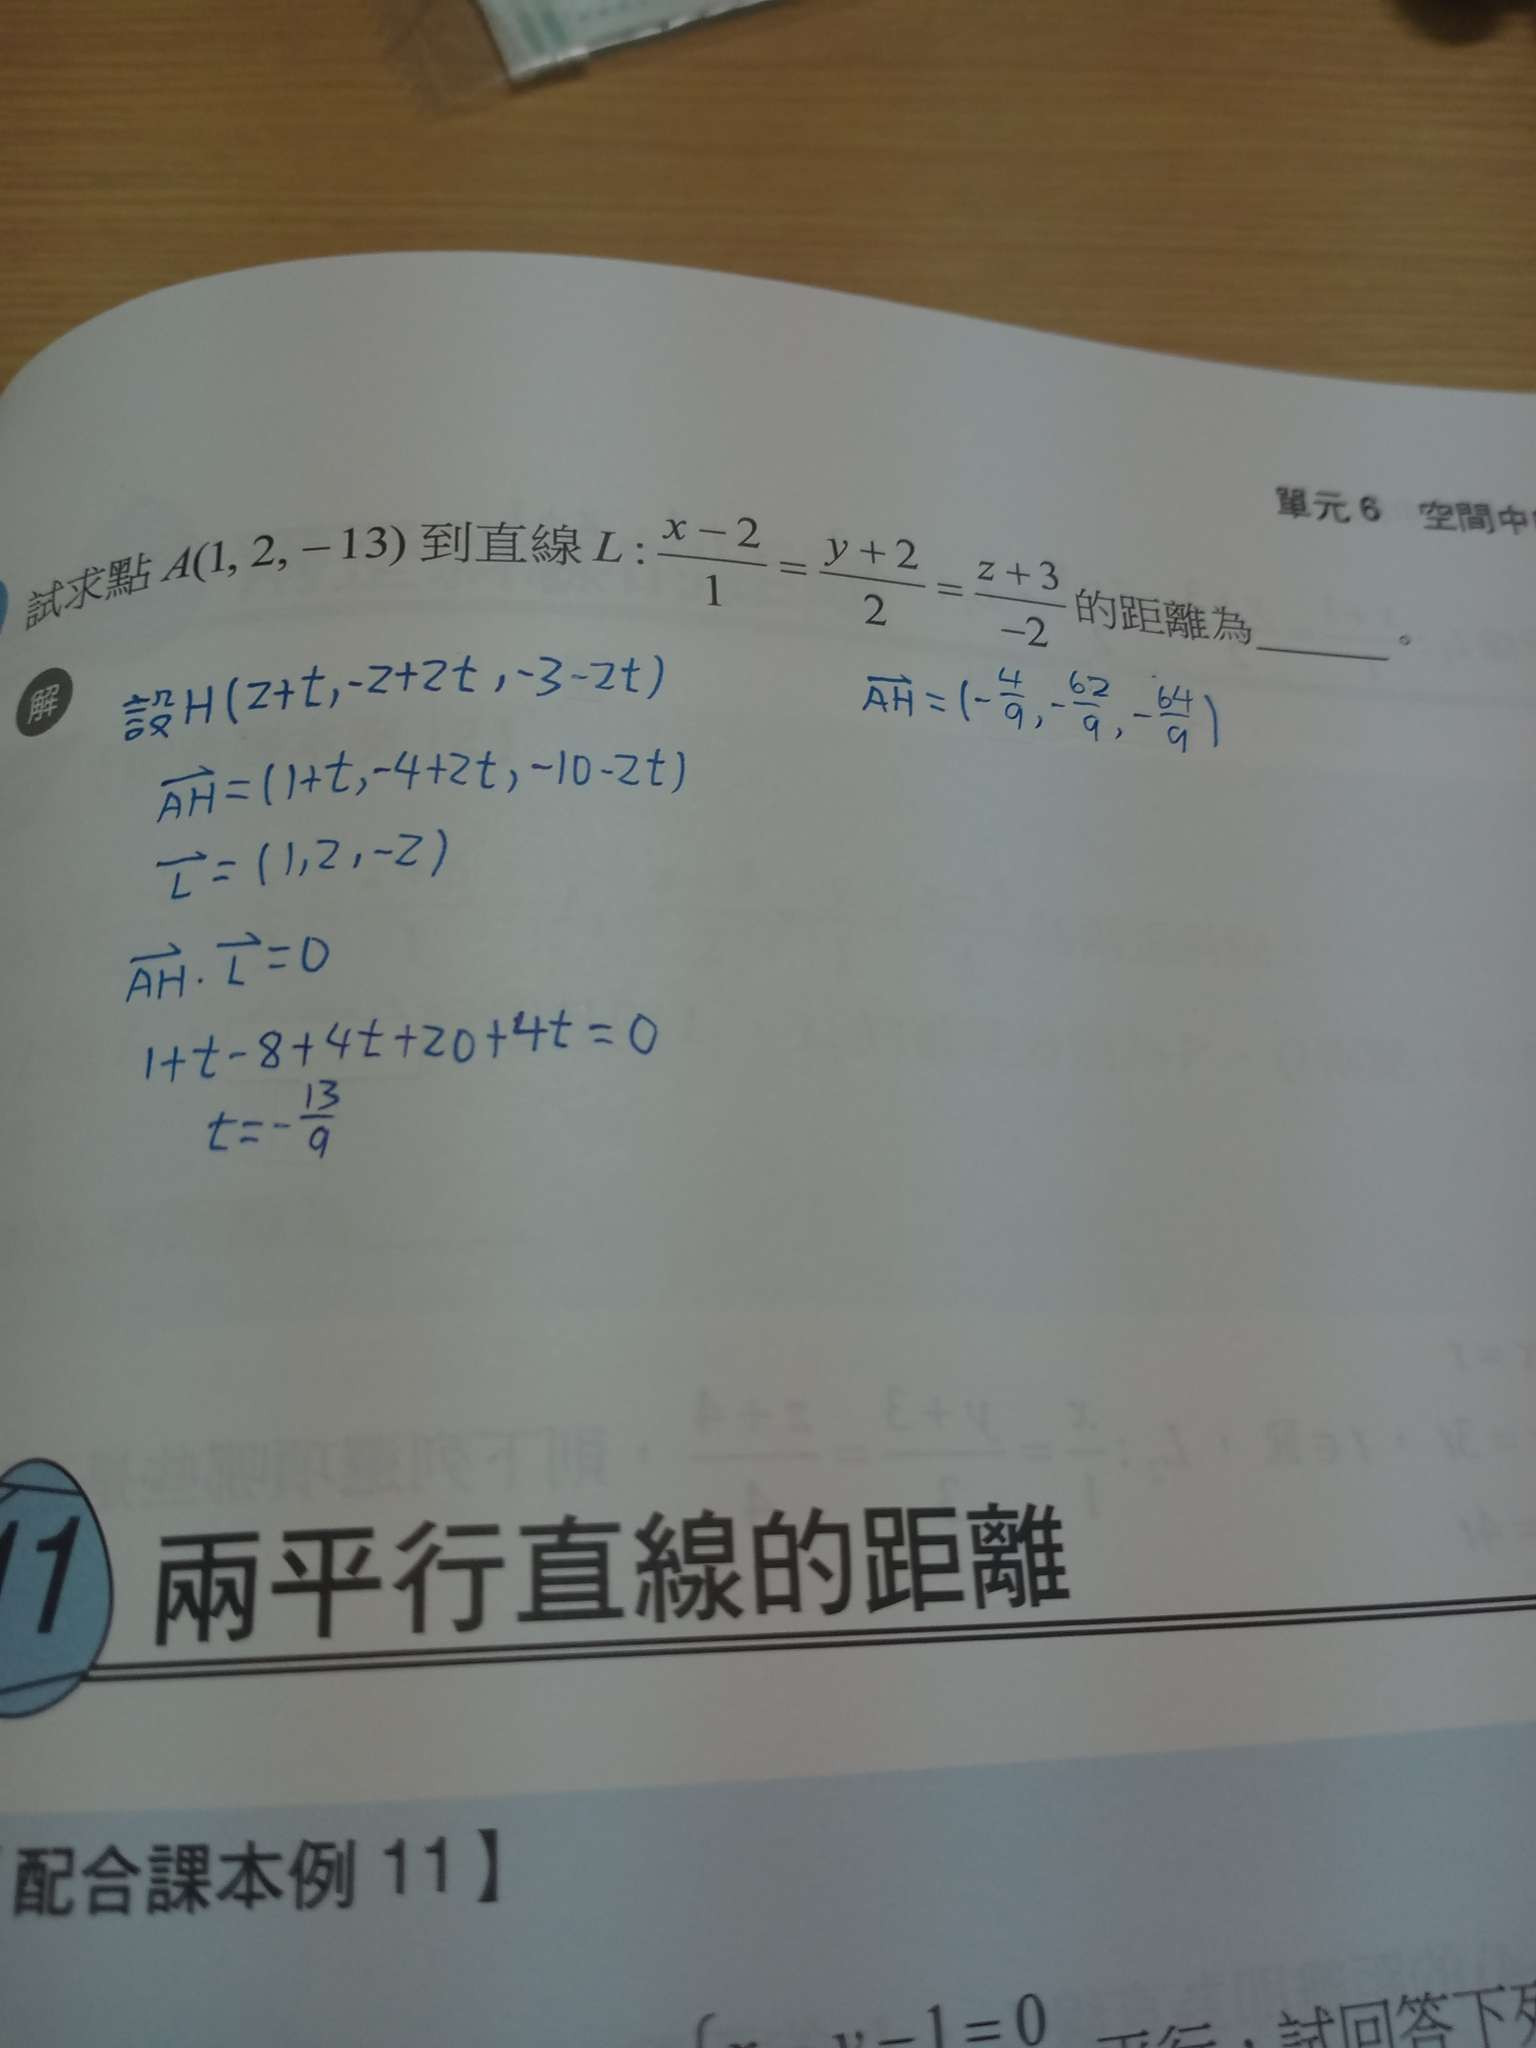 單元 6 空間中
試求點 A(1, 2, −13) 到直線 L : \frac{x-2}{1} = \frac{y+2}{2} = \frac{z+3}{-2} 的距離為______。
解
設H(2+t, -2+2t, -3-2t)
\vec{AH} = (1+t, -4+2t, -10-2t)
\vec{L} = (1, 2, -2)
\vec{AH} · \vec{L} = 0
1+t-8+4t+20+4t=0
t=-\frac{13}{9}
\vec{AH} = (-\frac{4}{9}, -\frac{62}{9}, -\frac{64}{9})
11 兩平行直線的距離
配合課本例 11】
y − 1 = 0 平行，試回答下列